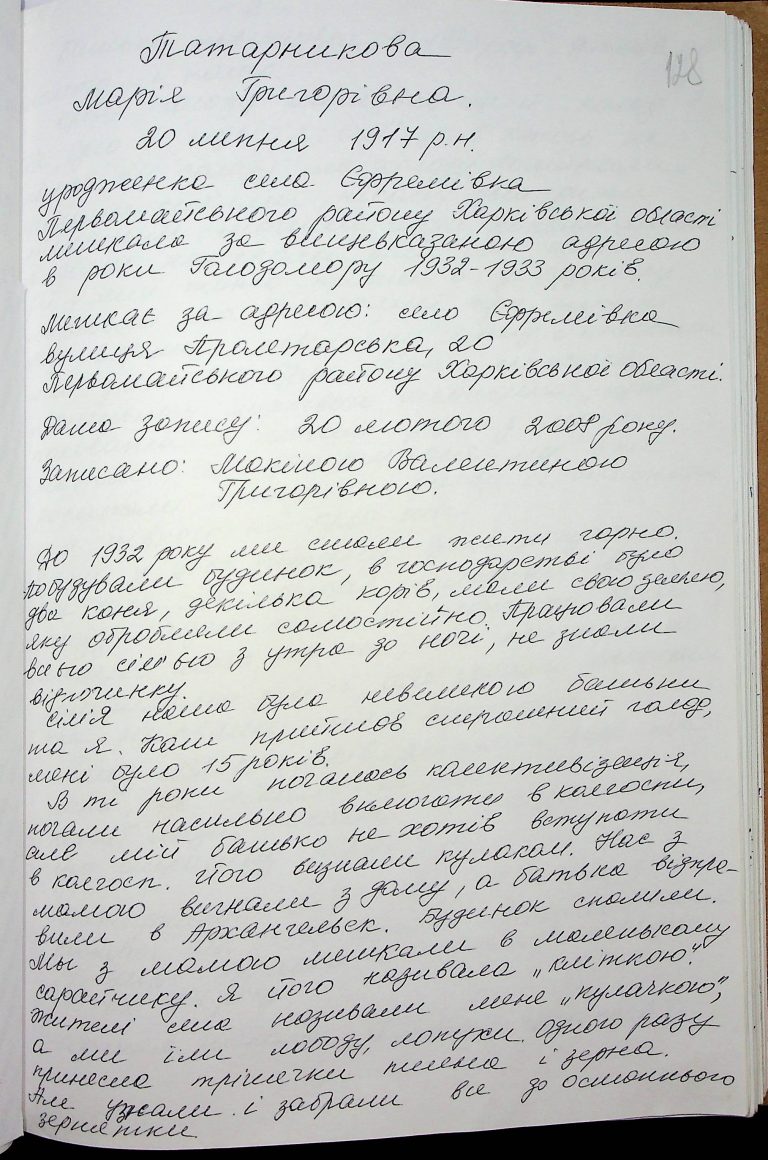 128
Татарникова
Марія Григорівна.
20 липня 1917 р.н.
уродженка села Єфремівка
Первомайського району Харківської області
мешкала за вищевказаною адресою
в роки Голодомору 1932-1933 років.
Мешкає за адресою: село Єфремівка
вулиця Пролетарська, 20
Первомайського району Харківської області.
Дата запису: 20 лютого 2008 року.
Записано: Мокіною Валентиною
Григорівною.
До 1932 року ми стали жити гарно.
Побудували будинок, в господарстві було
два коня, декілька корів, мали свою землю,
яку обробляли самостійно. Працювали
всією сім'ею з утра до ночі, не знали
відпочинку.
Сімія наша була невеликою батьки
та я. Коли прийшов страшний голод,
мені було 15 років.
В ті роки почалась колективізація,
почали насильно включати в колгоспи,
але мій батько не хотів вступати
в колгосп. Його визнали кулаком. Нас з
мамою вигнали з дому, а батька відпра-
вили в Архангельск. Будинок спалили.
Мы з мамою мешкали в маленькому
сарайчику. Я його називала „кліткою".
Жителі села називали мене „кулачкою",
а ми їли лободу, лопухи. Одного разу
принесла трішечки пшена і зерна.
Але узнали і забрали все до останнього
зернятки